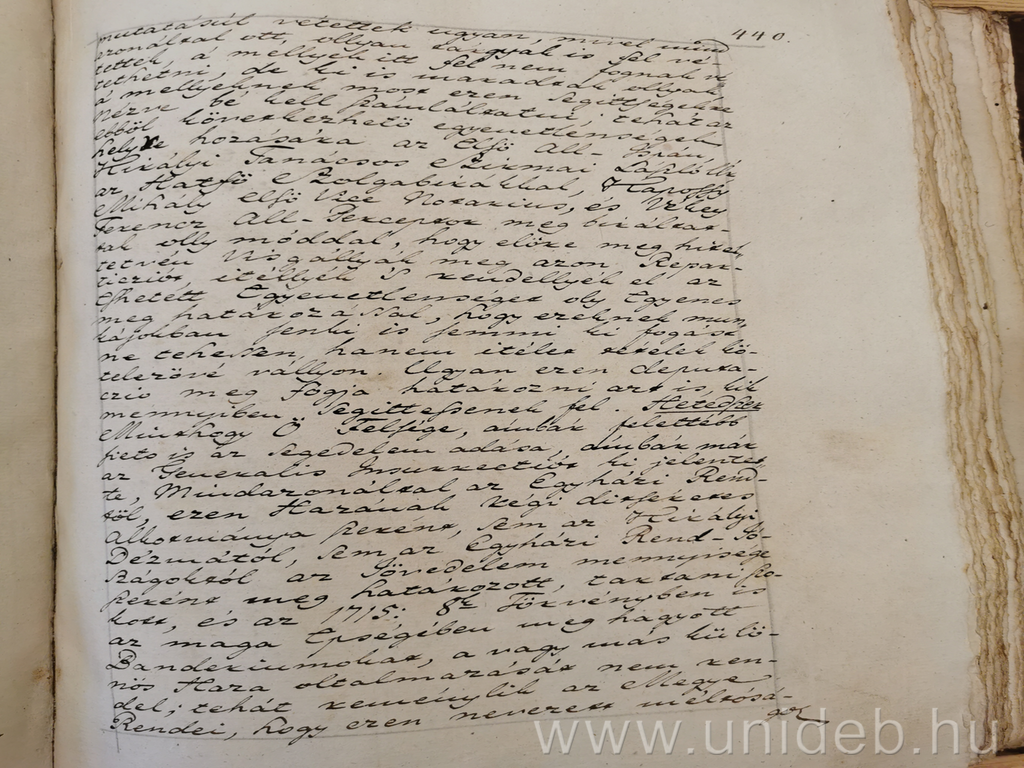 440.
mutatásúl vétettek ugyan, mivel mind
azonáltal ott ollyan tárgyak is fel vé-
tettek, a mellyek itt fel nem fognak vé-
tethetni, de ki is maradtak ollyak
a mellyeknek most ezen Segittségekre
nézve be kell számláltatni; tehát az
ebböl következhetö egyenetlenségnek
helyre hozására az Elsö All- Ispán
Királyi Tanácsos Szirmai László Úr
az Hatfö Szolgabirákkal, Kapossy
Mihály elsö Vice Notarius, és Vékey
Ferencz All-Perceptor meg bizattat-
tak olly móddal, hogy elöre meg hitel-
tetvén vi'sgállyák meg azon Repar-
titiót, itéllyék 's rendellyék el az
eshetett Egyenetlenséget oly Egyenes
meg határozással, hogy ezeknek mun-
kájokban senki is semmi ki fogást
ne tehessen, hanem itélet tételek kö-
telezövé vállyon. Ugyan ezen deputa-
czio meg fogja határozni azt is, kik
mennyiben segittessenek fel. Hetedszer
Minthogy Ö Felsége, ámbár felettébb
siető is az segedelem adása, ámbár már
az Generalis Insurrectiót ki jelentet-
te, Mindazonáltal az Egyházi Rend-
töl, ezen Hazának régi ditséretes
alkotmánya szerént, sem az Királyi
Dézmától, sem az Egyházi Rend-Jó-
szágoktól az Jövedelem mennyisége
szerént meg határozott, tartani szo-
kott, és az 1715: 8k Törvényben is
az maga Épségében meg hagyott
Bandériumokat, a vagy más külö-
nös Haza oltalmazását nem ren-
del; tehát reménylik az Megye
Rendei, hogy ezen nevezett méltósá-
www.unideb.hu